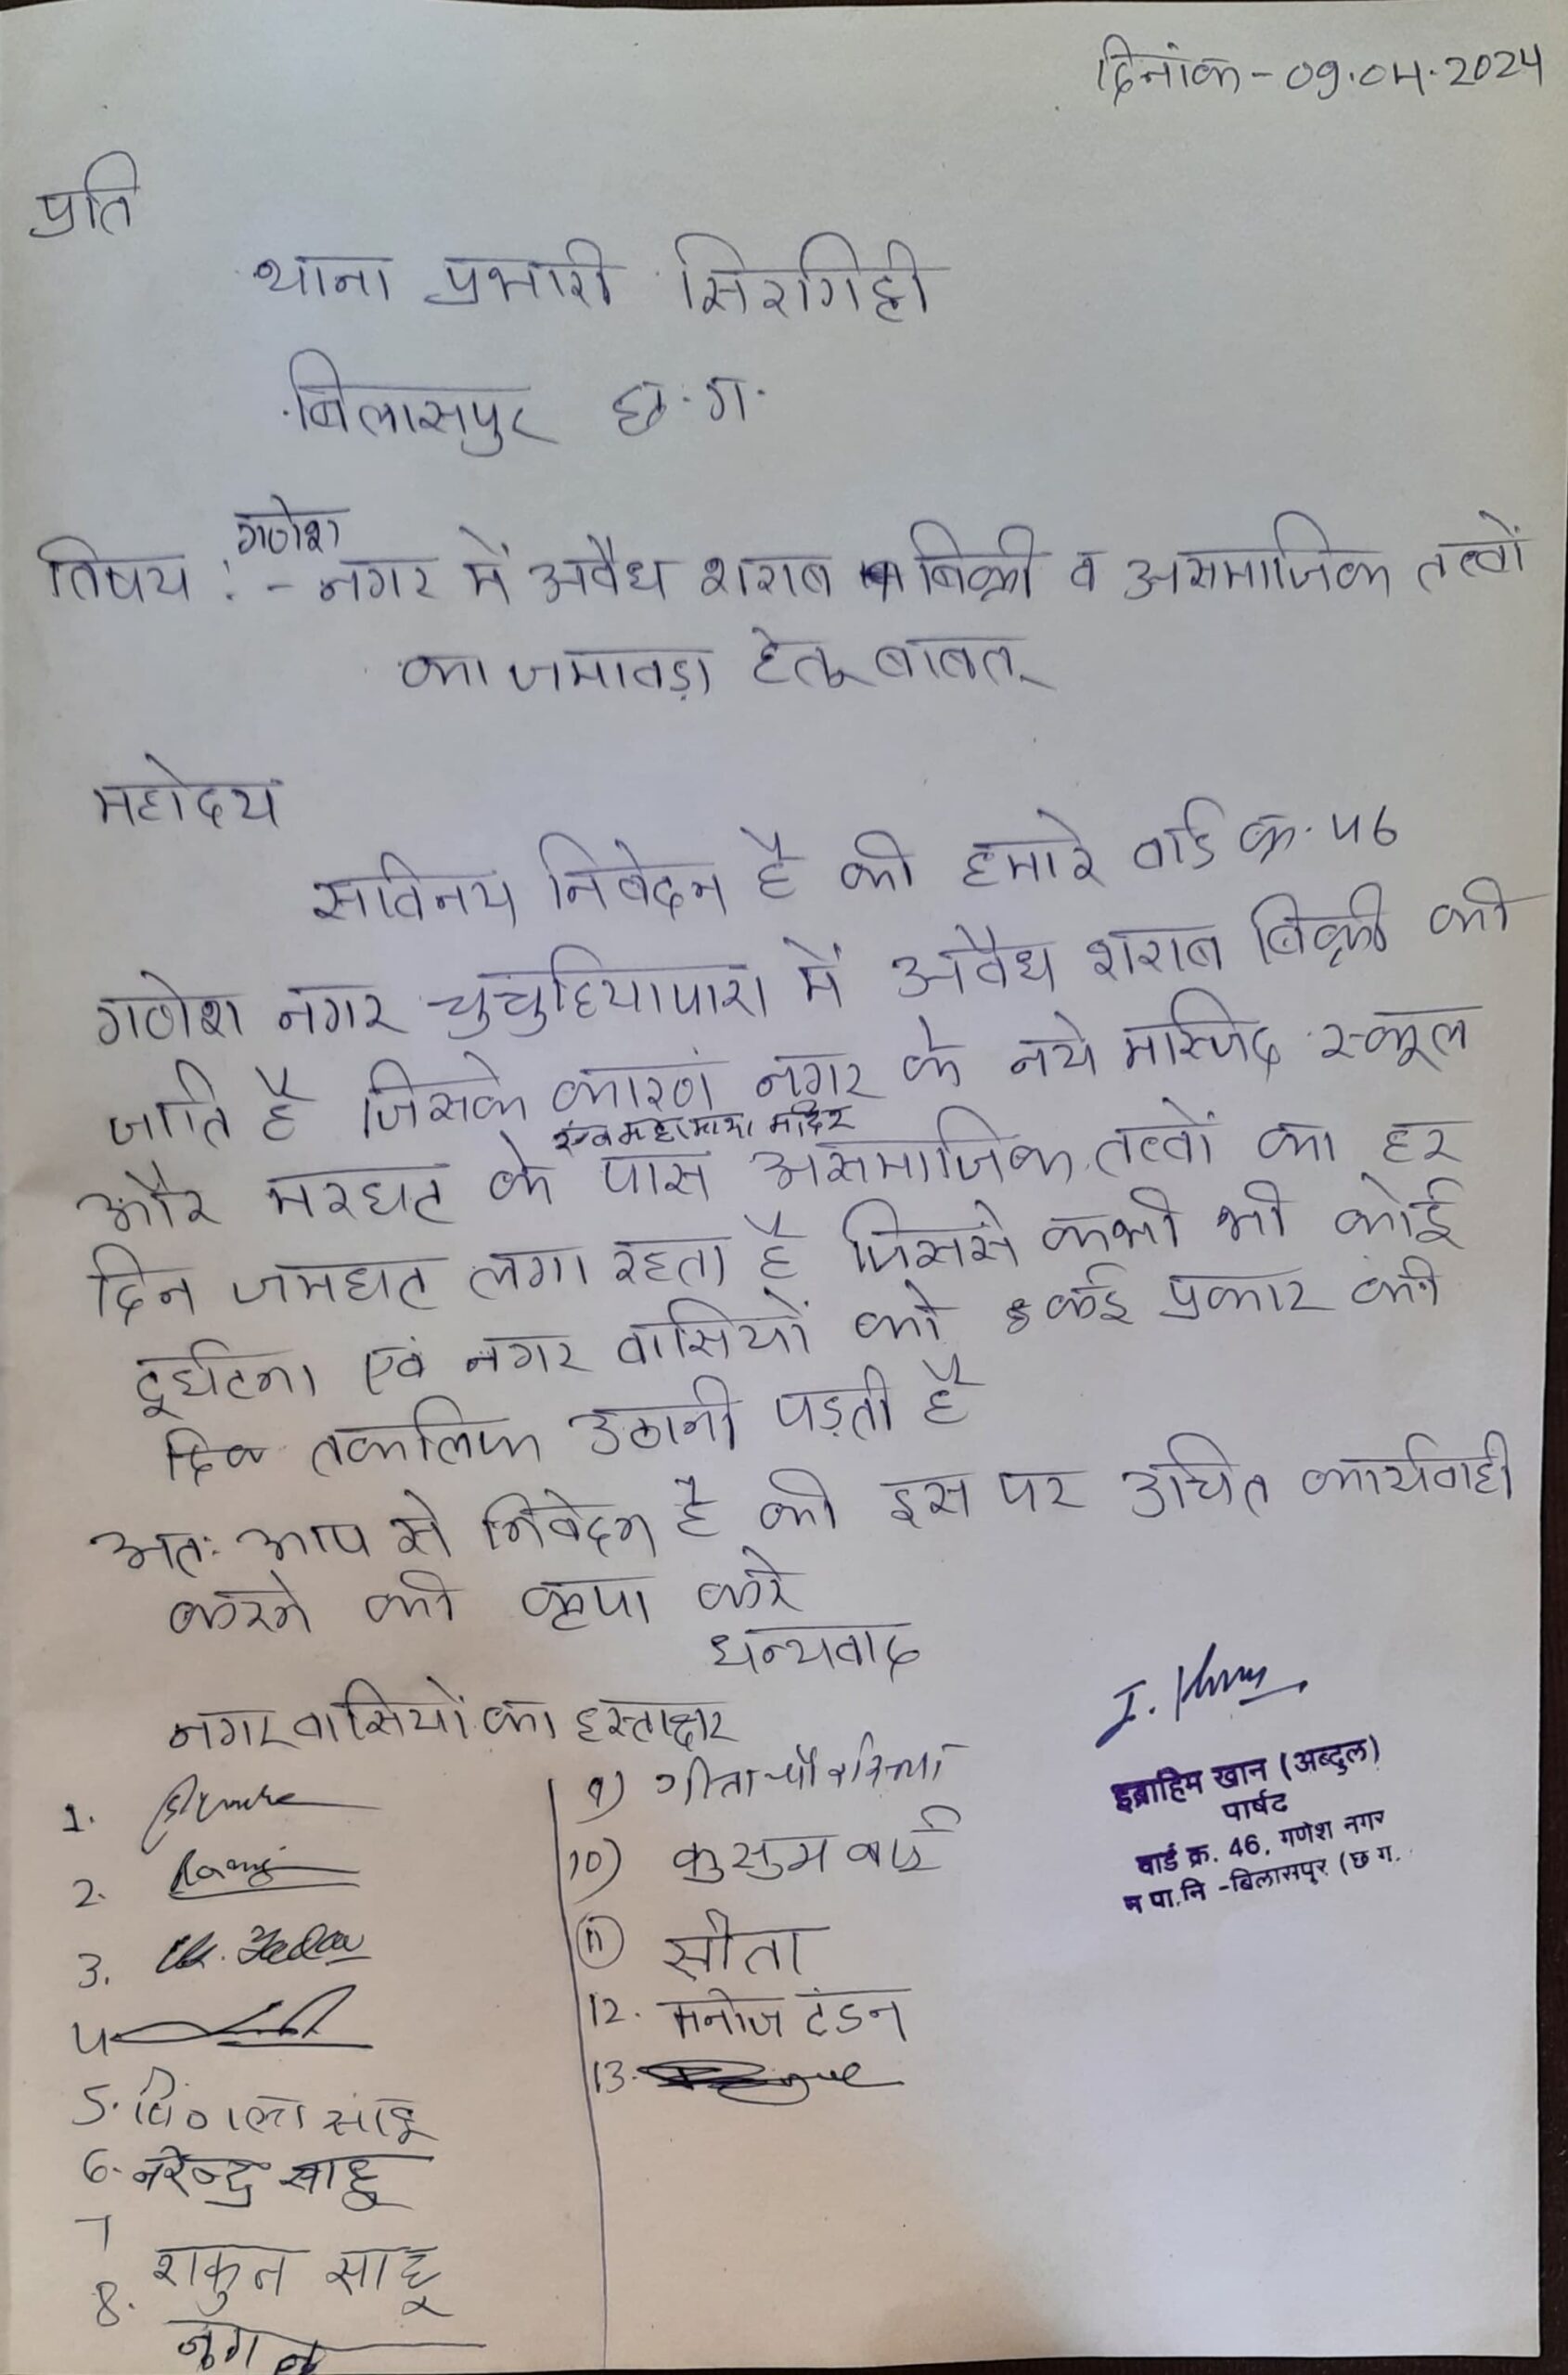 दिनांक - 09.04.2024
प्रति
थाना प्रभारी सिरगिट्टी
बिलासपुर छ.ग.
गणेश
विषय :- नगर में अवैध शराब बिक्री व असमाजिक तत्वों
का जमावड़ा हेतू बाबत्
महोदय
सविनय निवेदन है की हमारे वार्ड क्र. 46
गणेश नगर चुचुहियापारा में अवैध शराब बिक्री की
जाति है जिसके कारण नगर के नये मस्जिद स्कूल
एवं महामाया मंदिर
और मरघट के पास असमाजिक तत्वों का हर
दिन जमघट लगा रहता है जिससे कभी भी कोई
दूर्घटना एवं नगर वासियों को कई प्रकार की
तकलिफ उठानी पड़ती है
अतः आप से निवेदन है की इस पर उचित कार्यवाही
करने की कृपा करे
धन्यवाद
नगर वासियों का हस्ताक्षर
1.
2.
3. Yadav
4
5. साहू
6. नरेन्द्र साहू
7
शकुन साहू
8.
9) गीता
10) कुसुम बाई
11) सीता
12. मनोज टंडन
13.
I. Khan
इब्राहिम खान (अब्दुल)
पार्षद
वार्ड क्र. 46, गणेश नगर
न पा.नि - बिलासपुर (छ ग.